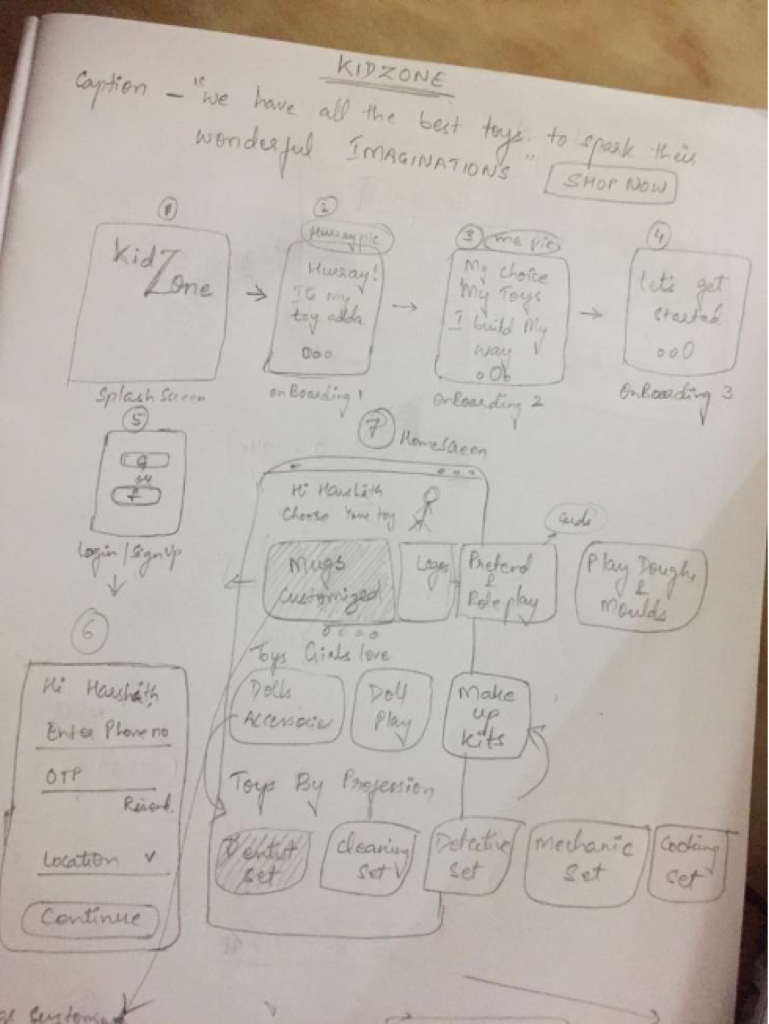 KIDZONE
Caption - "We have all the best toys to spark their
wonderful IMAGINATIONS"
SHOP NOW
1
Kid
Zone
Splash Screen
2
Hurray pic
Hurray!
Its my
toy adda
onBoarding 1
3
me pic
My choice
My Toys
I build My
way
OnBoarding 2
4
let's get
started
OnBoarding 3
5
G
or
f
Login/SignUp
6
Hi Harshith
Enter Phone no
OTP
Resend
Location
Continue
7
HomeScreen
Hi Harshith
Choose Your toy
Mugs
Customized
Legos
Pretend
&
Role play
Play Doughs
&
Moulds
Toys Girls love
Dolls
Accessories
Doll
Play
Make
up
kits
Toys By Profession
Dentist
Set
Cleaning
Set
Detective
Set
Mechanic
Set
Cooking
Set